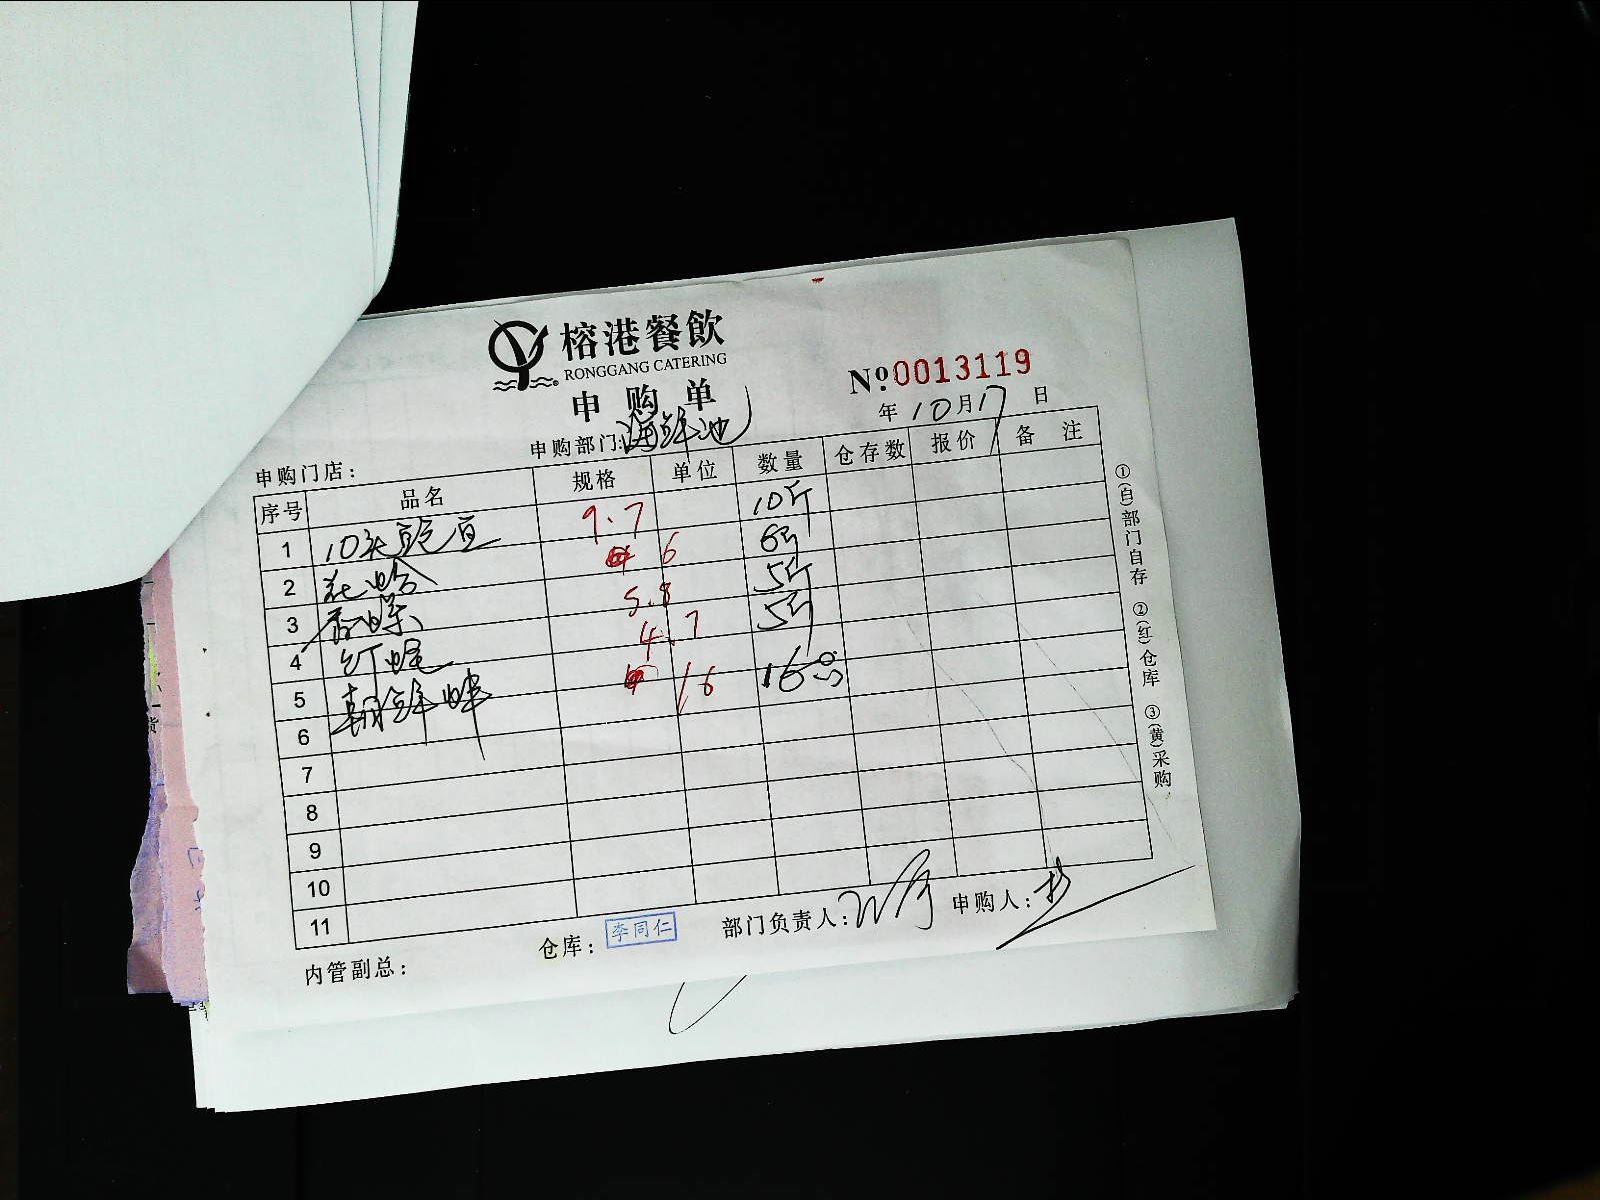 榕港餐飲
RONGGANG CATERING
申购单
№:0013119
年10月17日
申购门店：
申购部门:海鲜池
序号 品名 规格 单位 数量 仓存数 报价 备注
1 10头鲍 9.7 10斤
2 花蛤 6 6斤
3 香螺 5.8 5斤
4 红 4.7 5斤
5 朝鲜蚌 16 16
6
7
8
9
10
11
内管副总：
仓库：李同仁
部门负责人：
申购人：
①(白)部门自存 ②(红)仓库 ③(黄)采购
货